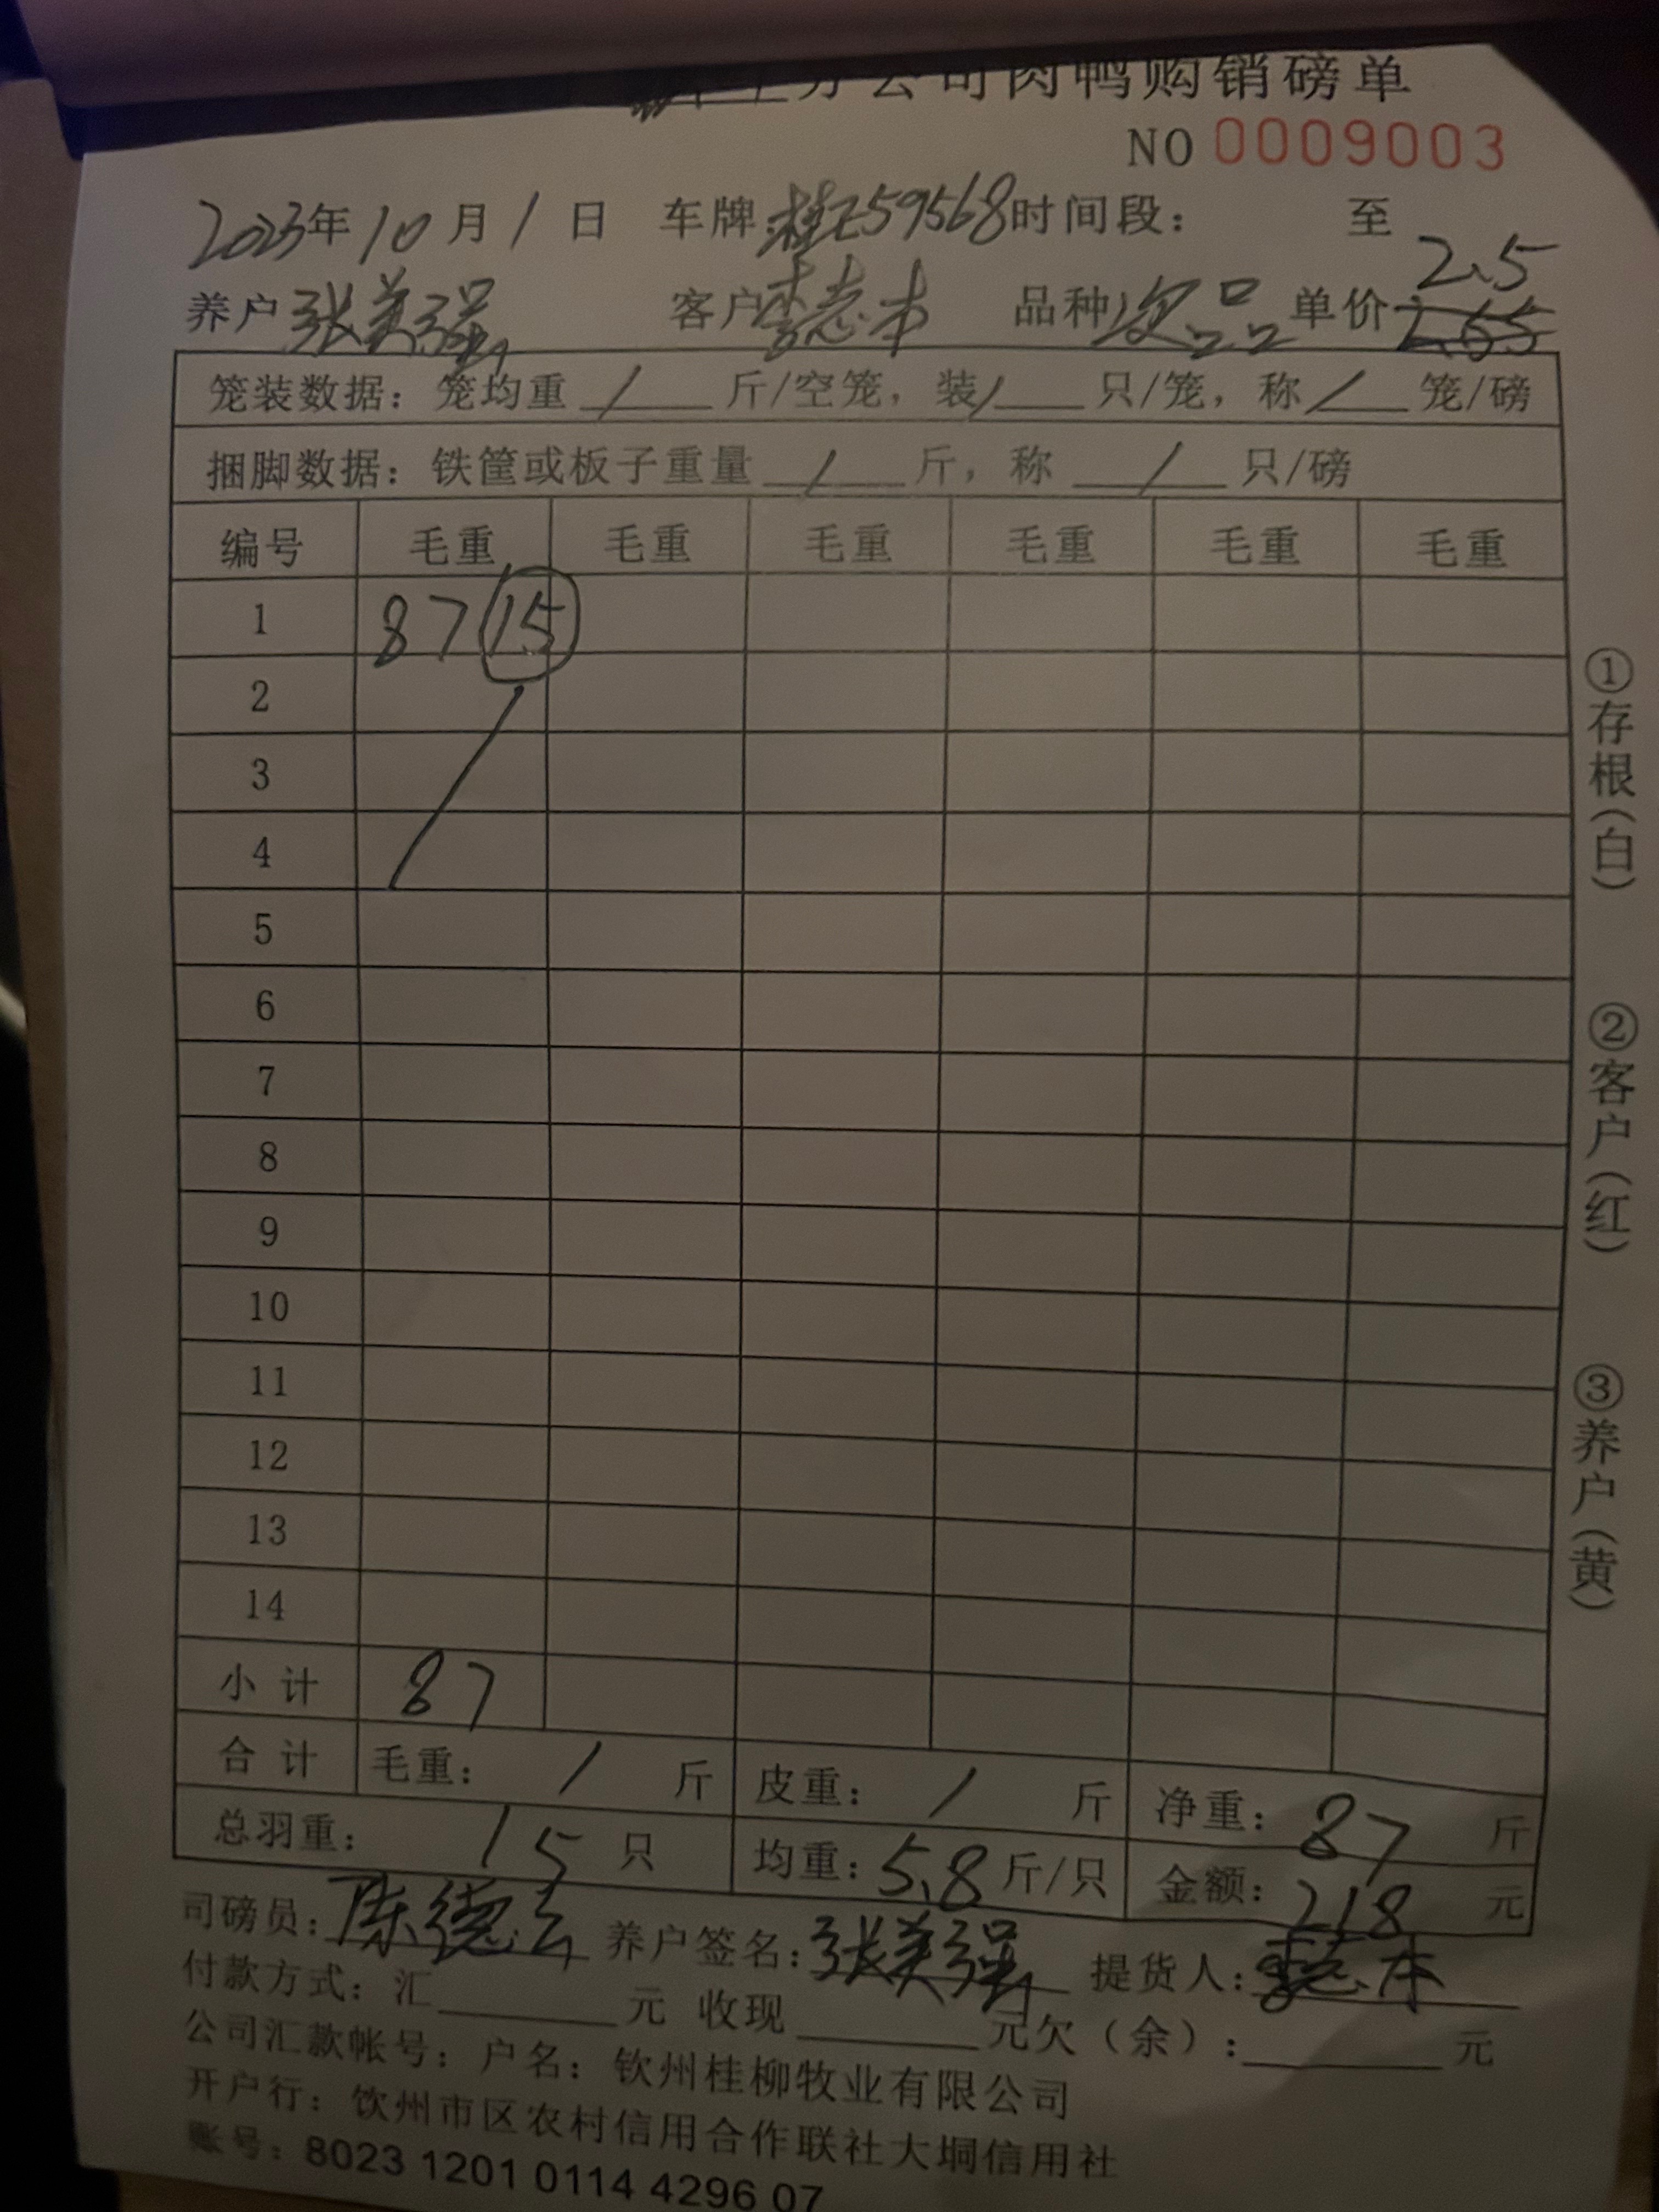 分公司肉鸭购销磅单
NO 0009003
2023年10月1日 车牌:桂E59568时间段: 至
养户 张美强 客户 李志本 品种 次品 单价 2.5 2.65
笼装数据: 笼均重 / 斤/空笼, 装 / 只/笼, 称 / 笼/磅
捆脚数据: 铁筐或板子重量 / 斤, 称 / 只/磅
编号 毛重 毛重 毛重 毛重 毛重 毛重
1 87 15
2
3
4
5
6
7
8
9
10
11
12
13
14
小计 87
合计 毛重: / 斤 皮重: / 斤 净重: 87 斤
总羽重: 15 只 均重: 5.8 斤/只 金额: 218 元
司磅员: 陈德 养户签名: 张美强 提货人: 李志本
付款方式: 汇 元 收现 元欠(余): 元
公司汇款帐号: 户名: 钦州桂柳牧业有限公司
开户行: 钦州市区农村信用合作联社大垌信用社
账号: 8023 1201 0114 4296 07
①存根(白)
②客户(红)
③养户(黄)